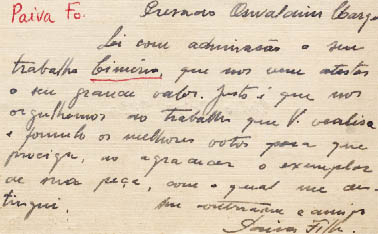 Paiva Fo. Presado Oswaldino Marques
Li com admiração o seu
trabalho Cimério, que nos vem atestar
o seu grande valor. Justo é que nos
orgulhemos do trabalho que V. realisa
e formulo os melhores votos para que
prosiga, ao agradecer o exemplar
de sua peça, com o qual me dis-
tingui.
seu admirador e amigo
Paiva Filho.